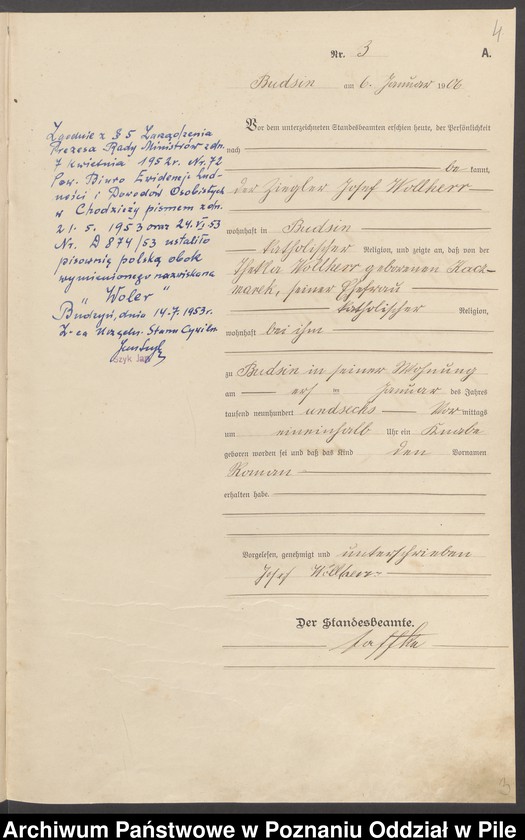 4
Nr. 3 A.
Budsin am 6. Januar 1906
Vor dem unterzeichneten Standesbeamten erschien heute, der Persönlichkeit
nach
be kannt,
der Ziegler Josef Wollherr
wohnhaft in Budsin
katholischer Religion, und zeigte an, daß von der
Thekla Wollherr geborenen Kacz-
marek, seiner Ehefrau
katholischer Religion,
wohnhaft bei ihm
zu Budsin in seiner Wohnung
am ersten Januar des Jahres
tausend neunhundert undsechs Vor mittags
um eineinhalb Uhr ein Knabe
geboren worden sei und daß das Kind den Vornamen
Roman
erhalten habe.
Vorgelesen, genehmigt und unterschrieben
Josef Wollherr
Der Standesbeamte.
Zgodnie z § 5 Zarządzenia
Prezesa Rady Ministrów z dn.
7 kwietnia 1952r. Nr. 72
Pow. Biuro Ewidencji Lud-
ności i Dowodów Osobistych
w Chodzieży pismem z dn.
21. 5. 1953 oraz 24. VI 53
Nr. A 874/53 ustaliło
pisownię polską obok
wymienionego nazwiska na
„ Woler "
Budzyń, dnia 14.7.1953r.
Z-ca Urzędn. Stanu Cywiln.
Archiwum Państwowe w Poznaniu Oddział w Pile